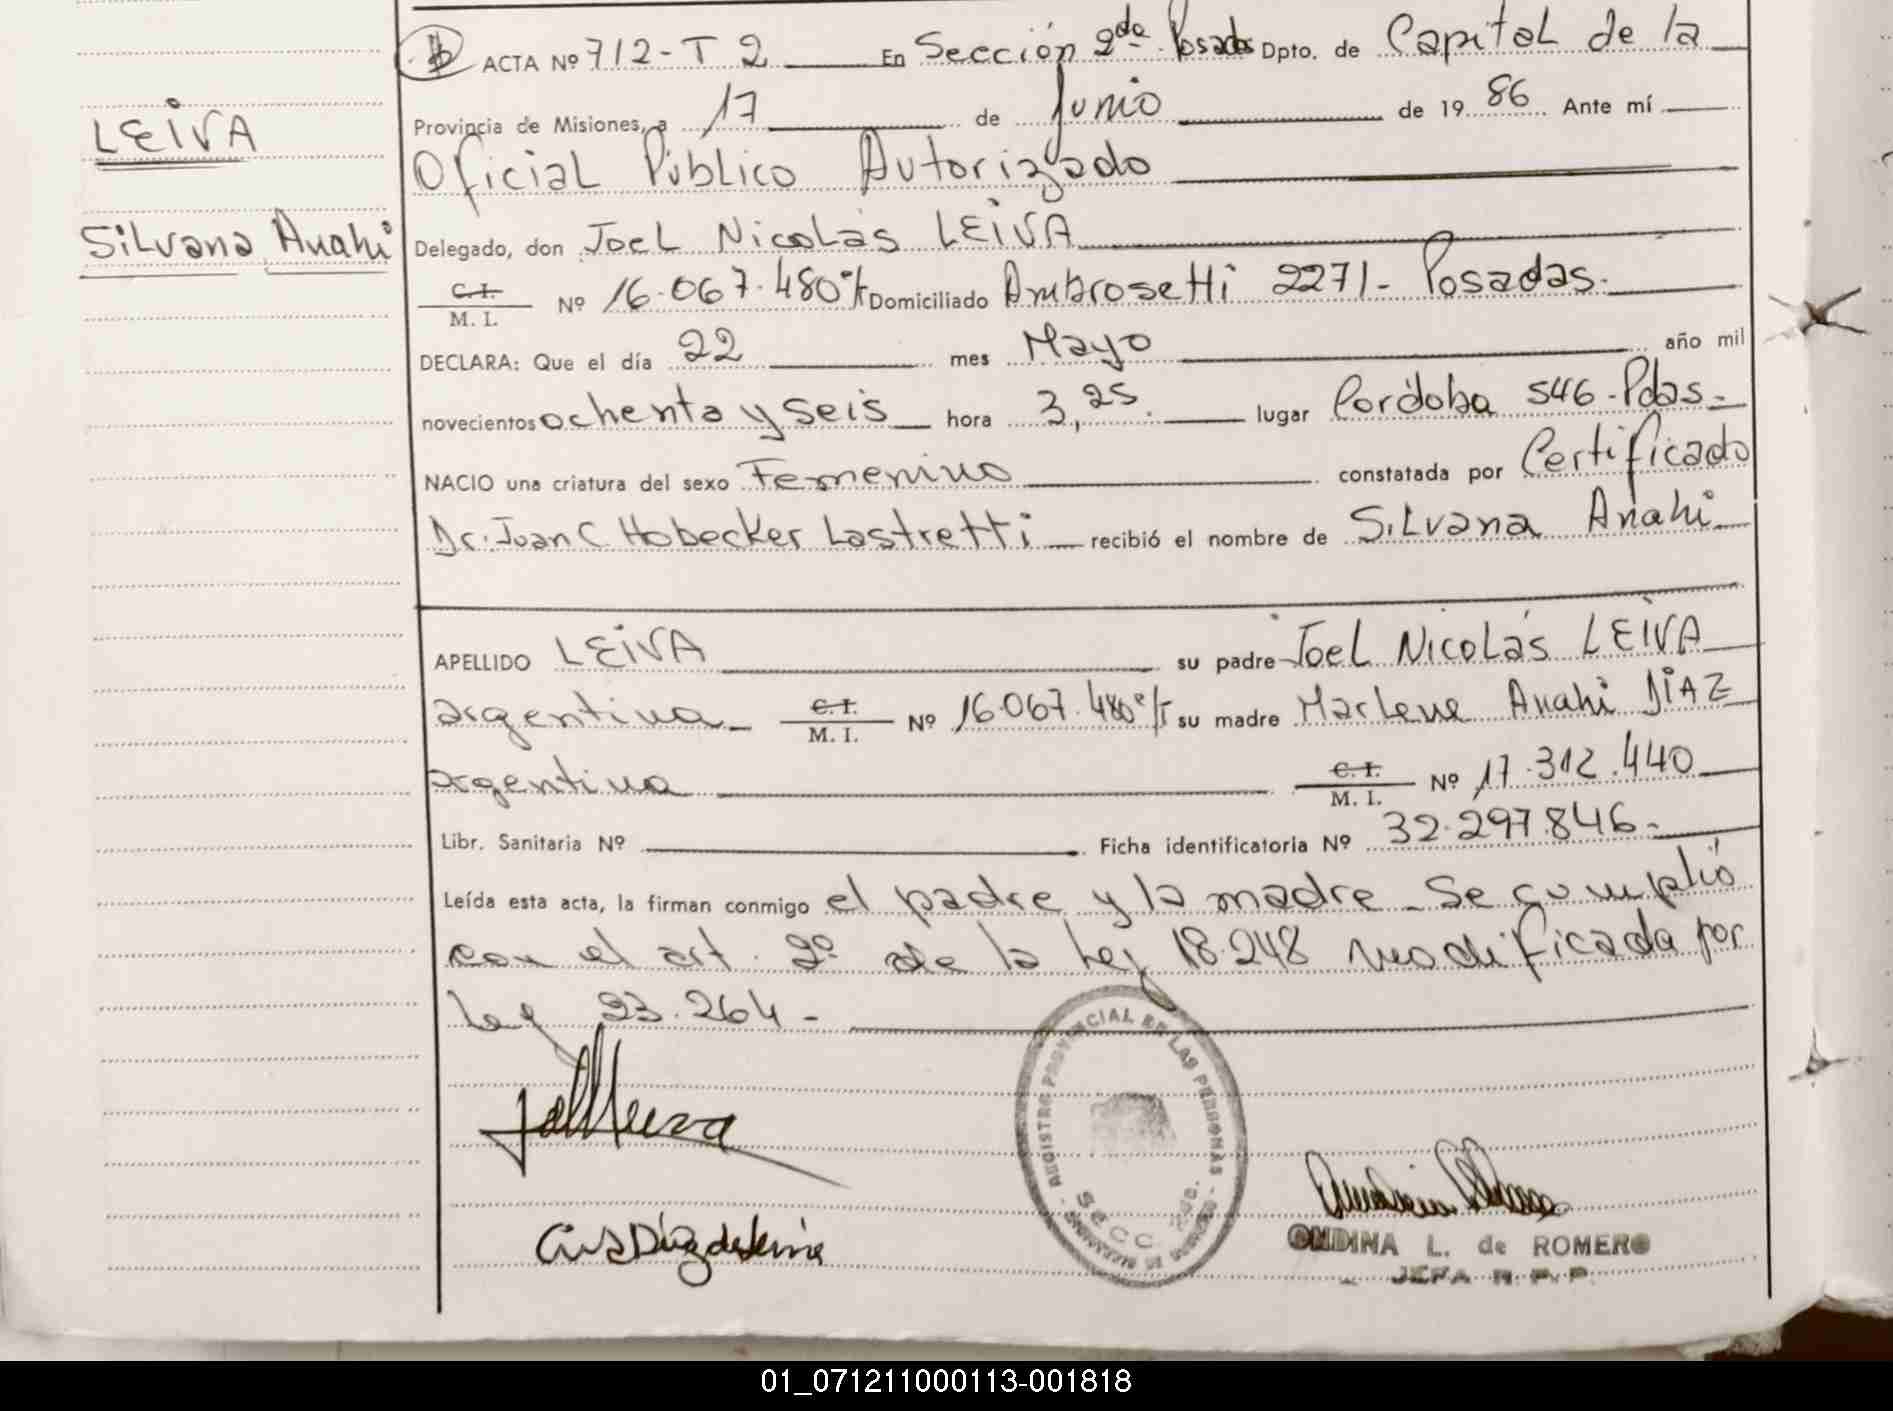 ACTA Nº 712-T 2 En Sección 2da Posadas Dpto. de Capital de la
Provincia de Misiones, a 17 de Junio de 19 86 Ante mí
Oficial Público Autorizado
LEIVA
Silvana Anahi
Delegado, don Joel Nicolás LEIVA
C.I. M. I. Nº 16.067.480 Domiciliado Ambrosetti 2271- Posadas.
DECLARA: Que el día 22 mes Mayo año mil
novecientos ochenta y seis hora 3,25. lugar Córdoba 546-Pdas-
NACIO una criatura del sexo Femenino constatada por Certificado
Dr. Juan C Hobecker Lastretti recibió el nombre de Silvana Anahi
APELLIDO LEIVA su padre Joel Nicolás LEIVA
argentina C.I. M. I. Nº 16.067.480 su madre Marlene Anahi DIAZ
argentina C.I. M. I. Nº 17.312.440
Libr. Sanitaria Nº Ficha identificatoria Nº 32.297.846-
Leída esta acta, la firman conmigo el padre y la madre - Se cumplió
con el art. 2º de la Ley 18.248 modificada por
ley 23.264-
REGISTRO PROVINCIAL DE LAS PERSONAS
SECC
ONDINA L. de ROMERO
JEFA R. P. P.
01_071211000113-001818